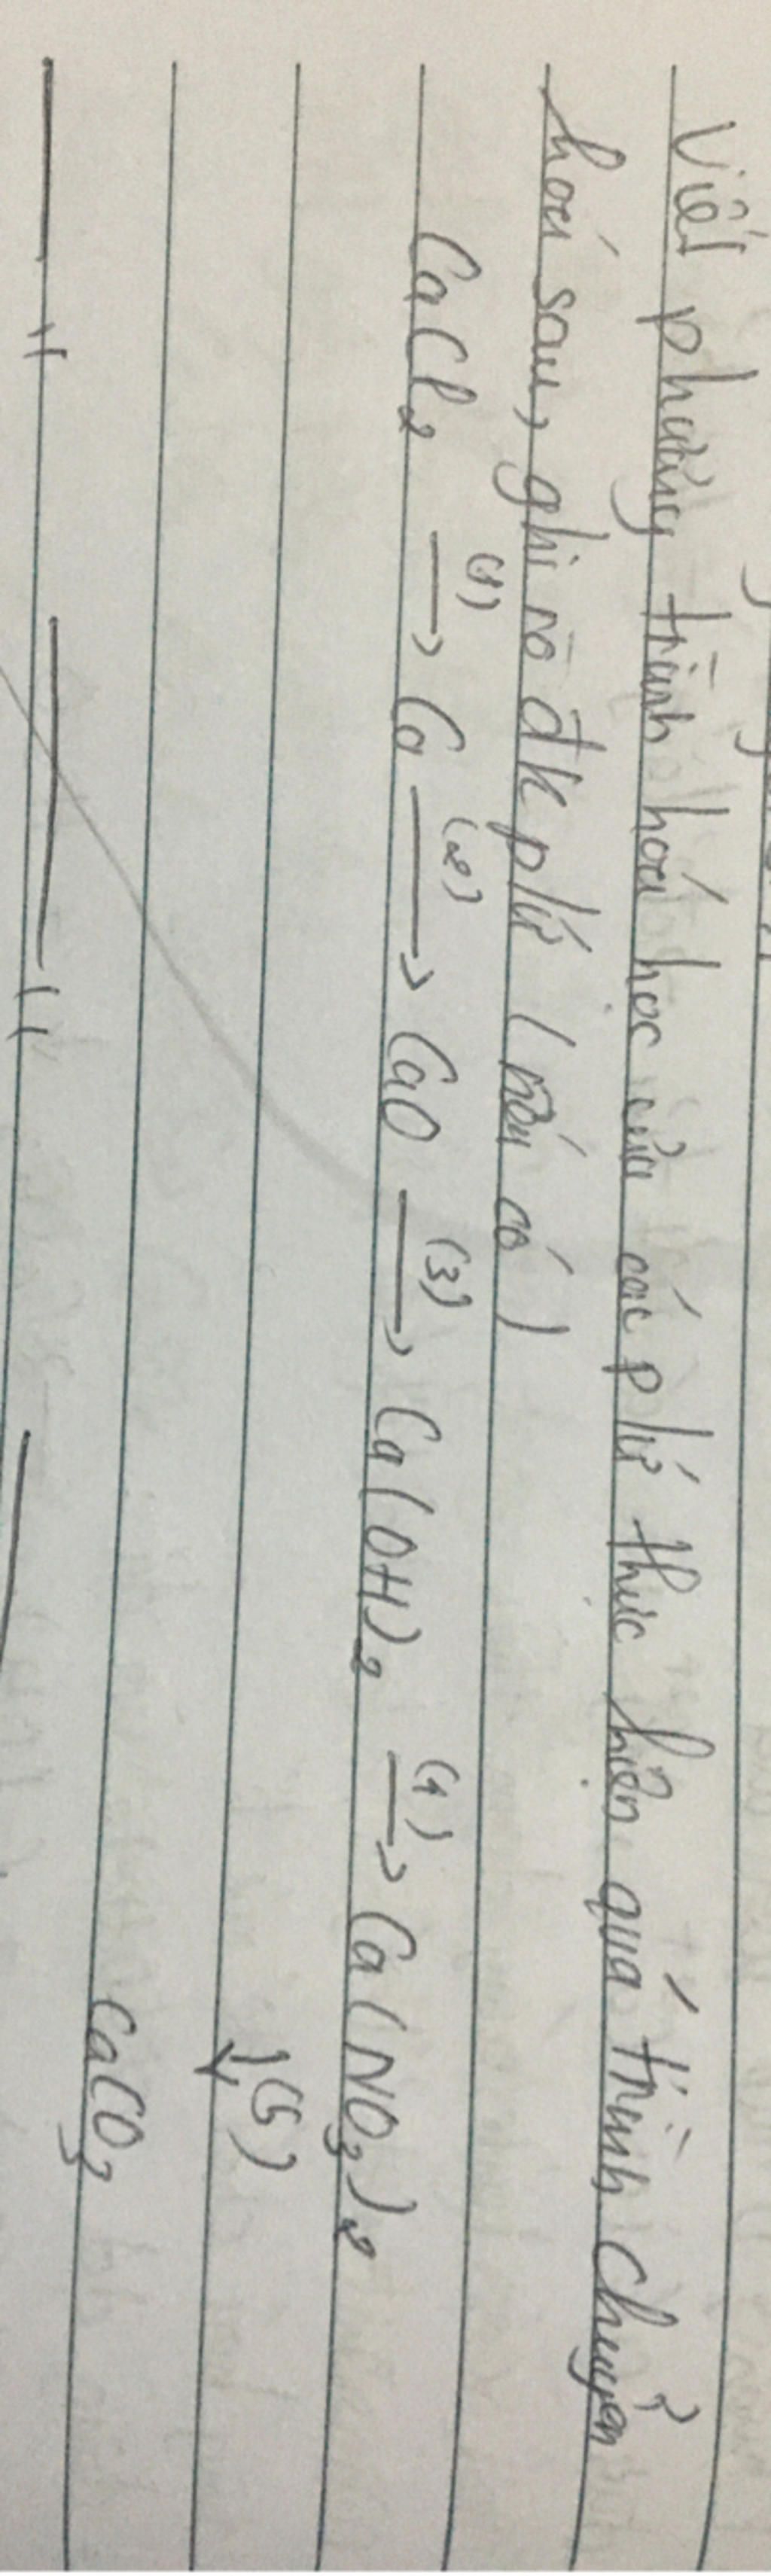 Viết phương trình hoá học của các pứ thực hiện quá trình chuyển
hoá sau, ghi rõ đk pứ (nếu có)
CaCl₂ —(1)→ Ca —(2)→ CaO —(3)→ Ca(OH)₂ —(4)→ Ca(NO₃)₂
↓(5)
CaCO₃